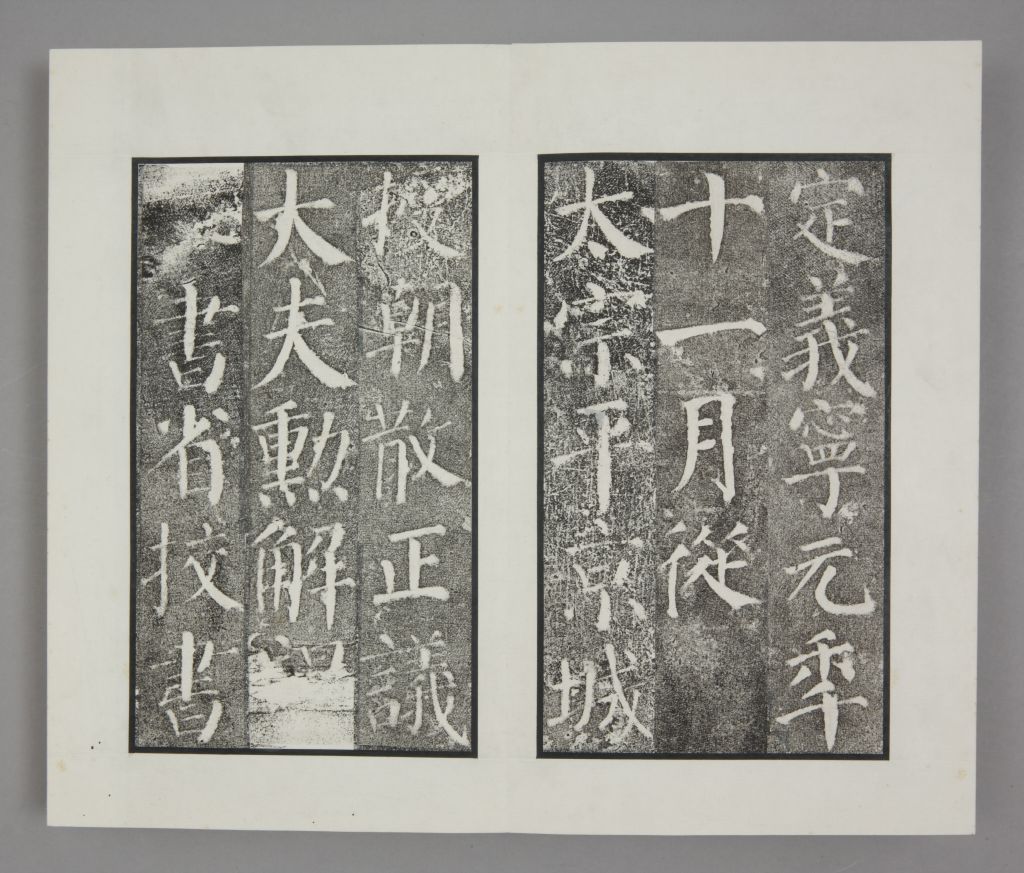 定義寧元年
十一月從
太宗平京城
授朝散正議
大夫勳解
書省挍書